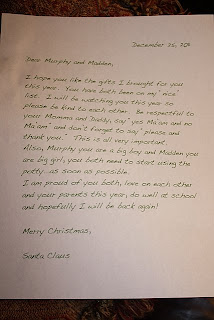 December 25,
Dear Murphy and Madden,
I hope you like the gifts I brought for you
this year. You have both been on my "nice"
list. I will be watching you this year so
please be kind to each other. Be respectful to
your Momma and Daddy, say "yes Ma'am and no
Ma'am" and don't forget to say "please and
thank you." This is all very important.
Also, Murphy you are a big boy and Madden you
are big girl, you both need to start using the
potty as soon as possible.
I am proud of you both, love on each other
and your parents this year, do well at school
and hopefully I will be back again!
Merry Christmas,
Santa Claus